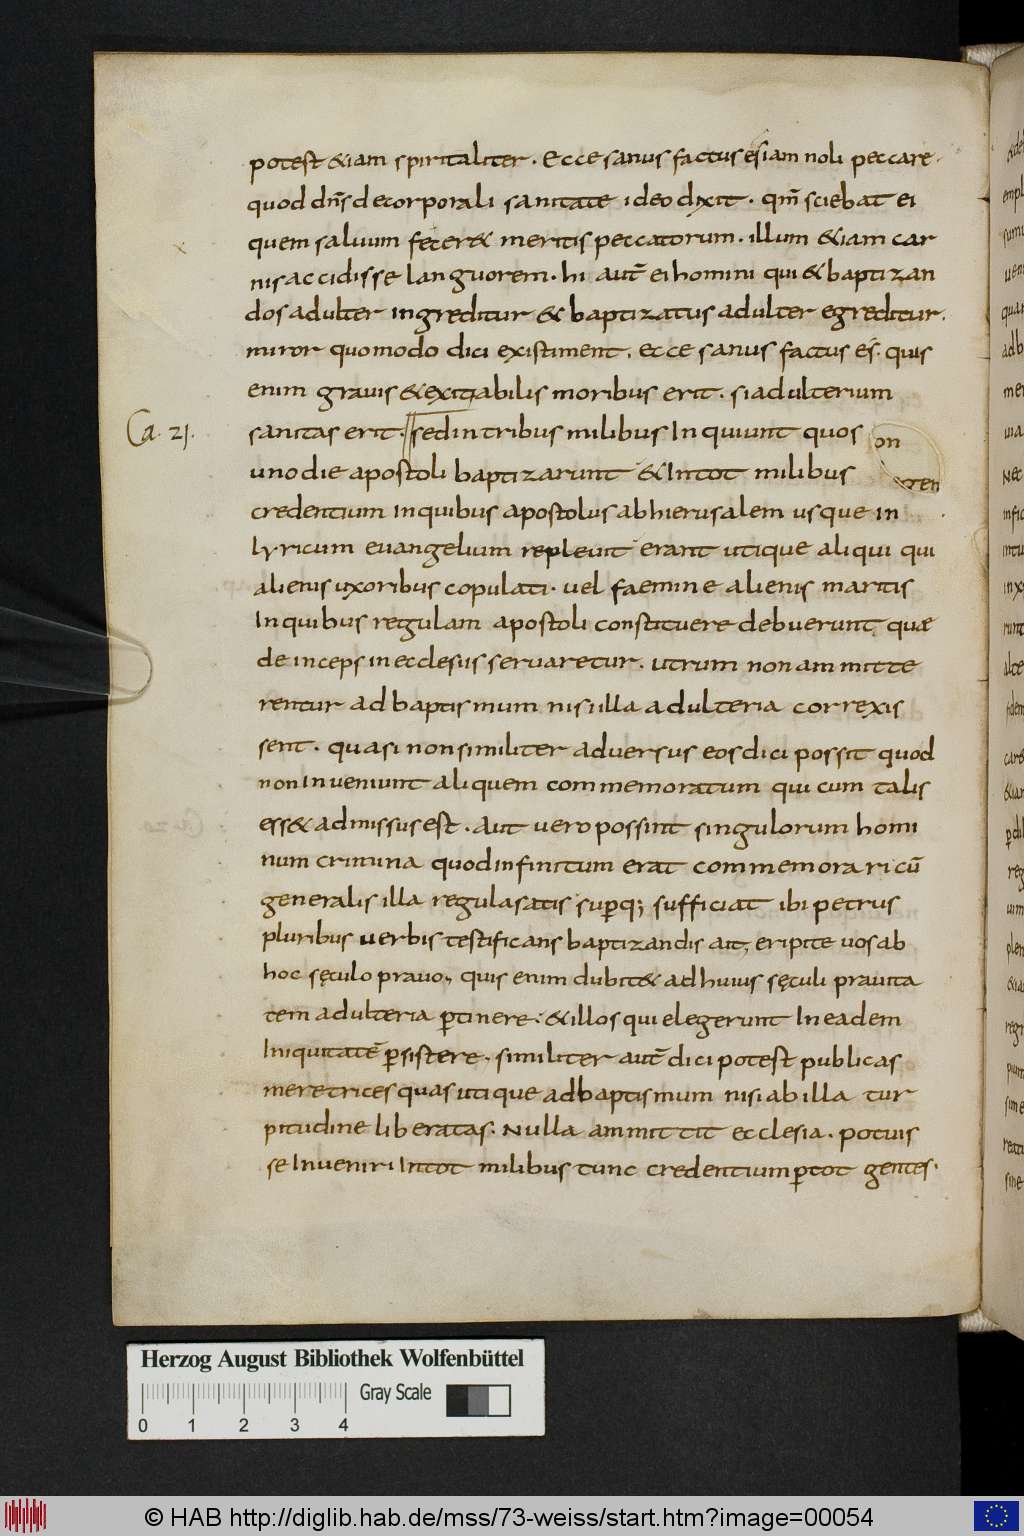 potest &iam spiritaliter. Ecce sanus factus es iam noli peccare.
quod dn̄s decorporali sanitate ideo dixit. qm̄ sciebat ei
quem saluum fecer& meritis peccatorum. illum &iam car
nis accidisse languorem. hi aut̄ ei homini qui & baptizan
dos adulter ingreditur & baptizatus adulter egreditur.
miror quomodo dici existiment. ecce sanus factus es. quis
enim grauis & exitiabilis moribus erit. si adulterium
Ca. 21. sanitas erit. sed in tribus milibus Inquiunt quos
uno die apostoli baptizarunt & In tot milibus
credentium in quibus apostolus ab hierusalem usque in
lyricum euangelium repleuit erant utique aliqui qui
alienis uxoribus copulati. uel faemine alienis maritis
In quibus regulam apostoli constituere debuerunt quae
deinceps in ecclesiis seruaretur. utrum non ammitte
rentur ad baptismum nisi illa adulteria correxis
sent. quasi non similiter aduersus eos dici possit quod
non Inueniunt aliquem commemoratum qui cum talis
ess& admissus est. Aut uero possint singulorum homi
num crimina quod infinitum erat commemorari cū
generalis illa regula satis supq; sufficiat ibi petrus
pluribus uerbis testificans baptizandis ait, eripite uos ab
hoc sęculo prauo, quis enim dubit& ad huius sęculi prauita
tem adulteria ptinere. & illos qui elegerunt In eadem
Iniquitatē psistere. similiter aut̄ dici potest publicas
meretrices quas utique ad baptismum nisi ab illa tur
pitudine liberatas. Nulla ammittit ecclesia. potuis
se Inueniri In tot milibus tunc credentium p tot gentes.
Herzog August Bibliothek Wolfenbüttel
Gray Scale
0 1 2 3 4
© HAB http://diglib.hab.de/mss/73-weiss/start.htm?image=00054